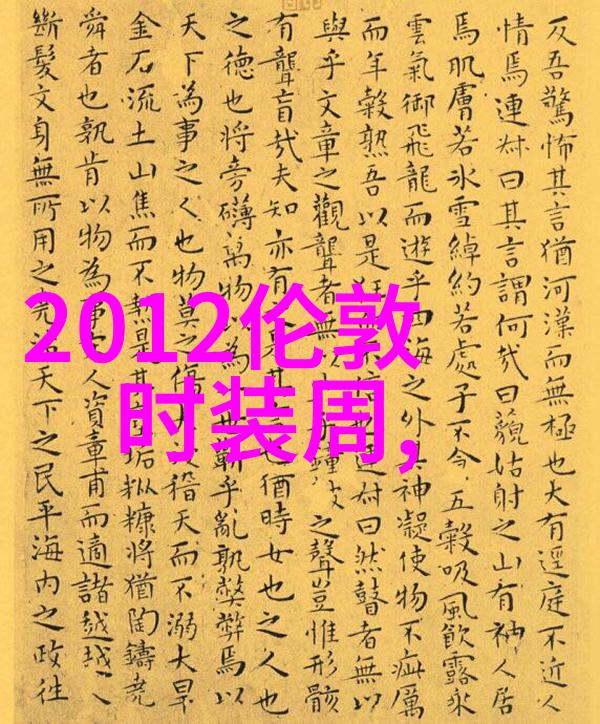 反吾驚怖其言猶河漢而無極也大有逕庭不近人
情焉連叔曰其言謂何哉曰藐姑射之山有神人居
焉肌膚若氷雪綽約若處子不食五穀吸風飲露乘
雲氣御飛龍而遊乎四海之外其神凝使物不疵厲
而年穀熟吾以是狂不信也連叔曰然瞽者無以
與乎文章之觀聾者無以乎鍾鼓之聲豈惟形骸
有聾盲哉夫知亦有之是其言也猶時女也之人也
之德也將旁礴萬物以為一世蘄乎亂孰弊弊焉以
天下為事之人也物莫之傷大浸稽天而不溺大旱
金石流土山焦而不熱是其塵垢粃糠將猶陶鑄堯
舜者也孰肯以物為事宋人資章甫而適諸越越
斷髮文身無所用之堯治天下之民平海内之政往
2012伦敦
时装周,